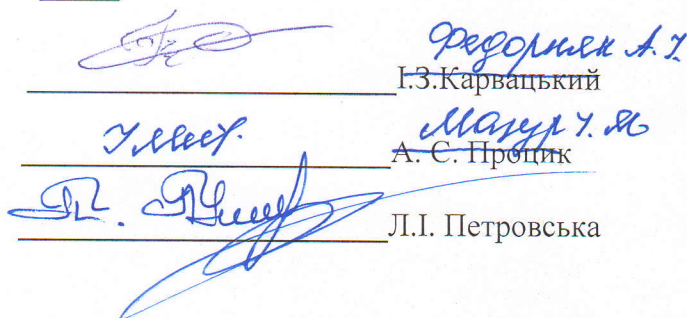 Федорняк А.І.
І.З.Карвацький
Мазур І. Я.
А. Є. Процик
Л.І. Петровська